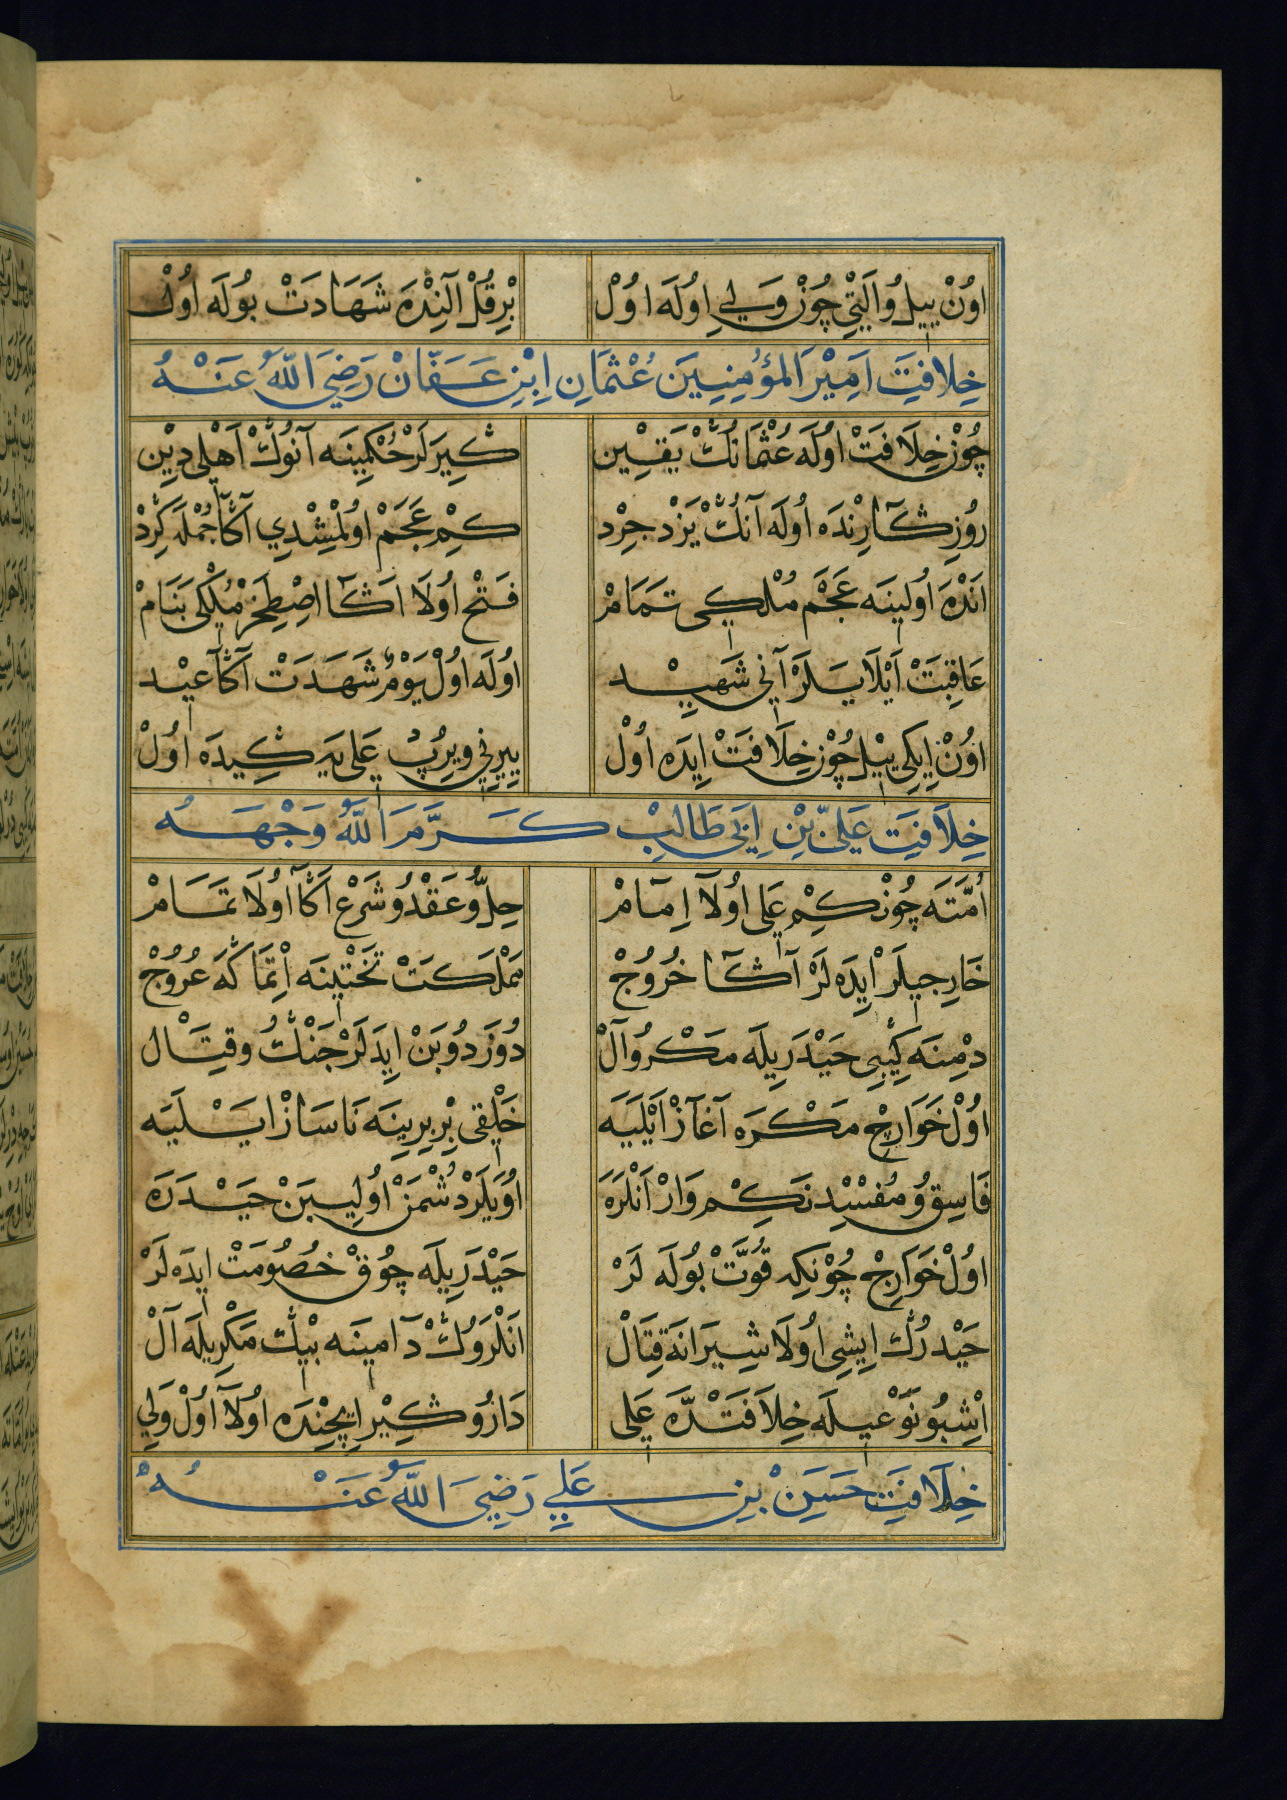 اوُنْ ييلْ وُ اَلتِي چُونْ وَلِي اوُلَه اوُلْ بِرْ قُلْ اَلِنْدَه شَهَادَتْ بوُلَه اوُلْ
خِلَافَتِ اَمِيرَ الْمُؤْمِنِينَ عُثْمَانِ اِبْنِ عَفَّانْ رَضِيَ اللّٰهُ عَنْهُ
چُونْ خِلَافَتْ اوُلَه عُثْمَانُڭْ يَقِينْ ڭِيرَلَرْ حُكْمِينَه آنُوڭْ اَهْلِ دِينْ
رُوزِڭَارِنْدَه اُولَه آنُڭْ يَزْدِجِرْدْ كِمْ عَجَمْ اوُلْمِشْدِي آڭَا جُمْلَه كِرْدْ
اَنْدَه اُولِينَه عَجَمْ مُلْكِي تَمَامْ فَتْح اوُلَا اَڭَا اِصْطَخْرْ مُلْكِي بَنَامْ
عَاقِبَتْ اَيْلَايَلَرْ آنِي شَهِيدْ اوُلَه اوُلْ يَوْمْ شَهَدَتْ آڭَا عِيْد
اوُنْ اِيكِي ييلْ چُونْ خِلَافَتْ اِيدَه اوُلْ ييرِنِي وِيرُپْ عَلِى يَه ڭِيدَه اوُلْ
خِلَافَتِ عَلِيِّ بْنِ اِبِي طَالِبْ كَرَّمَ اللّٰهُ وَجْهَهُ
اُمَّتَه چُونْ كِمْ عَلِى اوُلَا اِمَامْ حِلُّ وعَقْدُ وشَرْع اَڭَا اوُلَا تَمَامْ
خَارِجِيلَرْ اِيدَه لَرْ آڭَا خُرُوجْ مَمْلَكَتْ تَخْتِينَه اِتْمَاڭَه عُرُوجْ
دِمْنَه ڭِيبِي حَيْدَرِيلَه مَكْرُ وآلْ دُوزَدُوبَنْ اِيدَلَرْ جَنْڭُ وقِتَالْ
اوُلْ خَوَارِجْ مَكْرَه آغَازْ اَيْلَيَه خَلْقِى بِرْبِرِينَه نَاسَازْ اَيْلَيَه
فَاسِقُ ومُفْسِدْ نَه كِمْ وَارْ اَنْلَرَه اوُيَلَرْ دُشْمَنْ اوُلِيبَنْ حَيْدَرَه
اوُلْ خَوَارِجْ چُونْكِه قُوَّتْ بوُلَه لَرْ حَيْدَرِيلَه چُوقْ خُصُومَتْ اِيدَه لَرْ
حَيْدَرُڭ اِيشِى اوُلَا شِيرَانَه قِتَالْ اَنْلَرُوڭْ دَامِينَه بِيْڭ مَكْرِيلَه آلْ
اِشْبُو نَوْعِيلَه خِلَافَتْدَه عَلِى دَارُوڭِيرْ اِيچِنْدَه اوُلَا اوُلْ وَلِي
خِلَافَتِ حَسَنْ بِنْ عَلِي رَضِيَ اللّٰهُ عَنْهُ